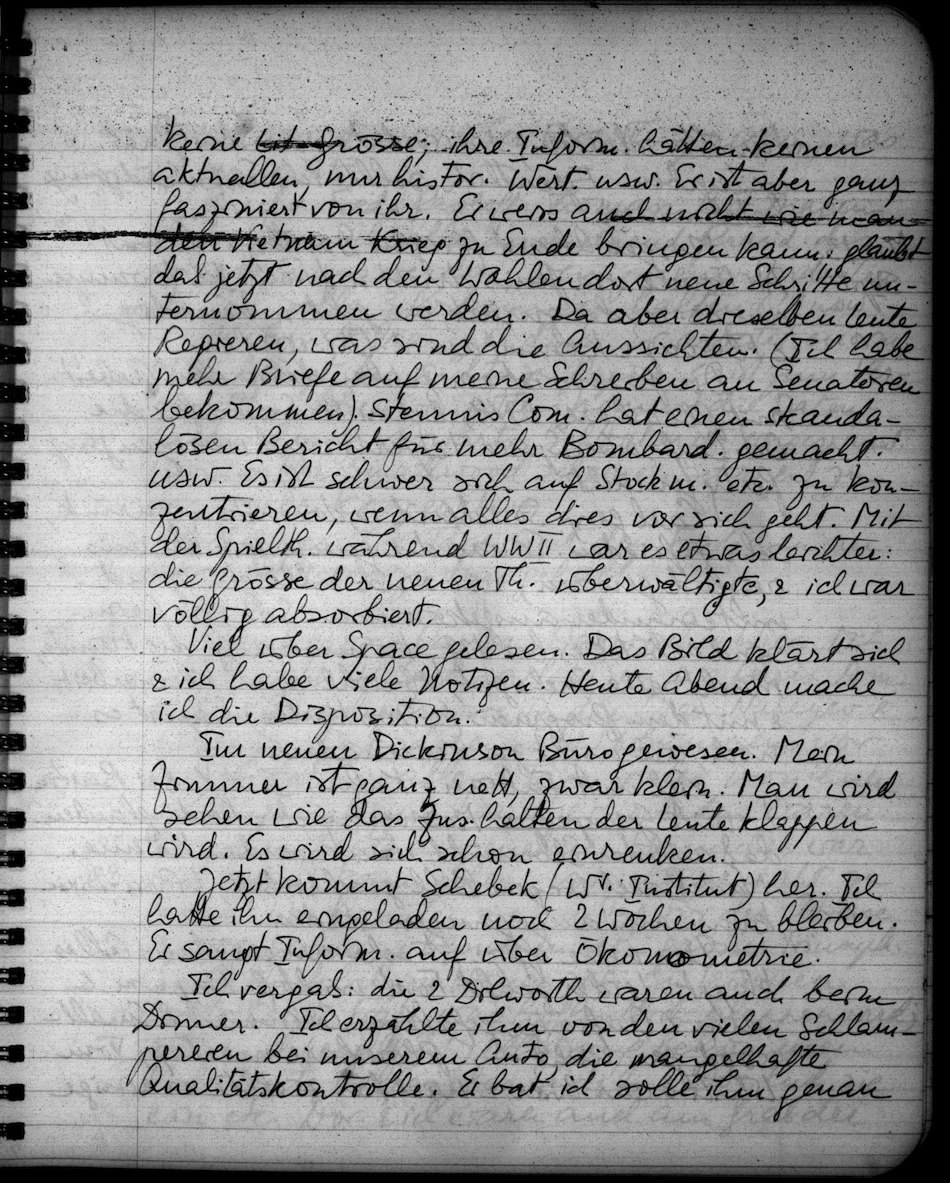 keine lit. Grösse; ihre Inform. hätten keinen
aktuellen, nur histor. Wert. usw. Er ist aber ganz
fasziniert von ihr. Er weiss auch nicht wie man
den Vietnam Krieg zu Ende bringen kann; glaubt
daß jetzt nach den Wahlen dort neue Schritte un-
ternommen werden. Da aber dieselben Leute
Regieren, was sind die Aussichten. (Ich habe
mehr Briefe auf meine Schreiben an Senatoren
bekommen). Stennis Com. hat einen skanda-
lösen Bericht für mehr Bombard. gemacht.
usw. Es ist schwer sich auf Stockm. etc. zu kon-
zentrieren, wenn alles dies vor sich geht. Mit
der Spielth. während WW II war es etwas leichter:
die Grösse der neuen Th. überwältigte, & ich war
völlig absorbiert.
Viel über Space gelesen. Das Bild klärt sich
& ich habe viele Notizen. Heute Abend mache
ich die Disposition.
Im neuen Dickinson Büro gewesen. Mein
Zimmer ist ganz nett, zwar klein. Man wird
sehen wie das Zus.halten der Leute klappen
wird. Es wird sich schon einrenken.
Jetzt kommt Schebek (Wr. Institut) her. Ich
hatte ihn eingeladen noch 2 Wochen zu bleiben.
Er saugt Inform. auf über Ökonometrie.
Ich vergaß: die 2 Dilworth waren auch beim
Dinner. Ich erzählte ihm von den vielen Schlam-
pereien bei unserem Auto, die mangelhafte
Qualitätskontrolle. Er bat ich solle ihm genau